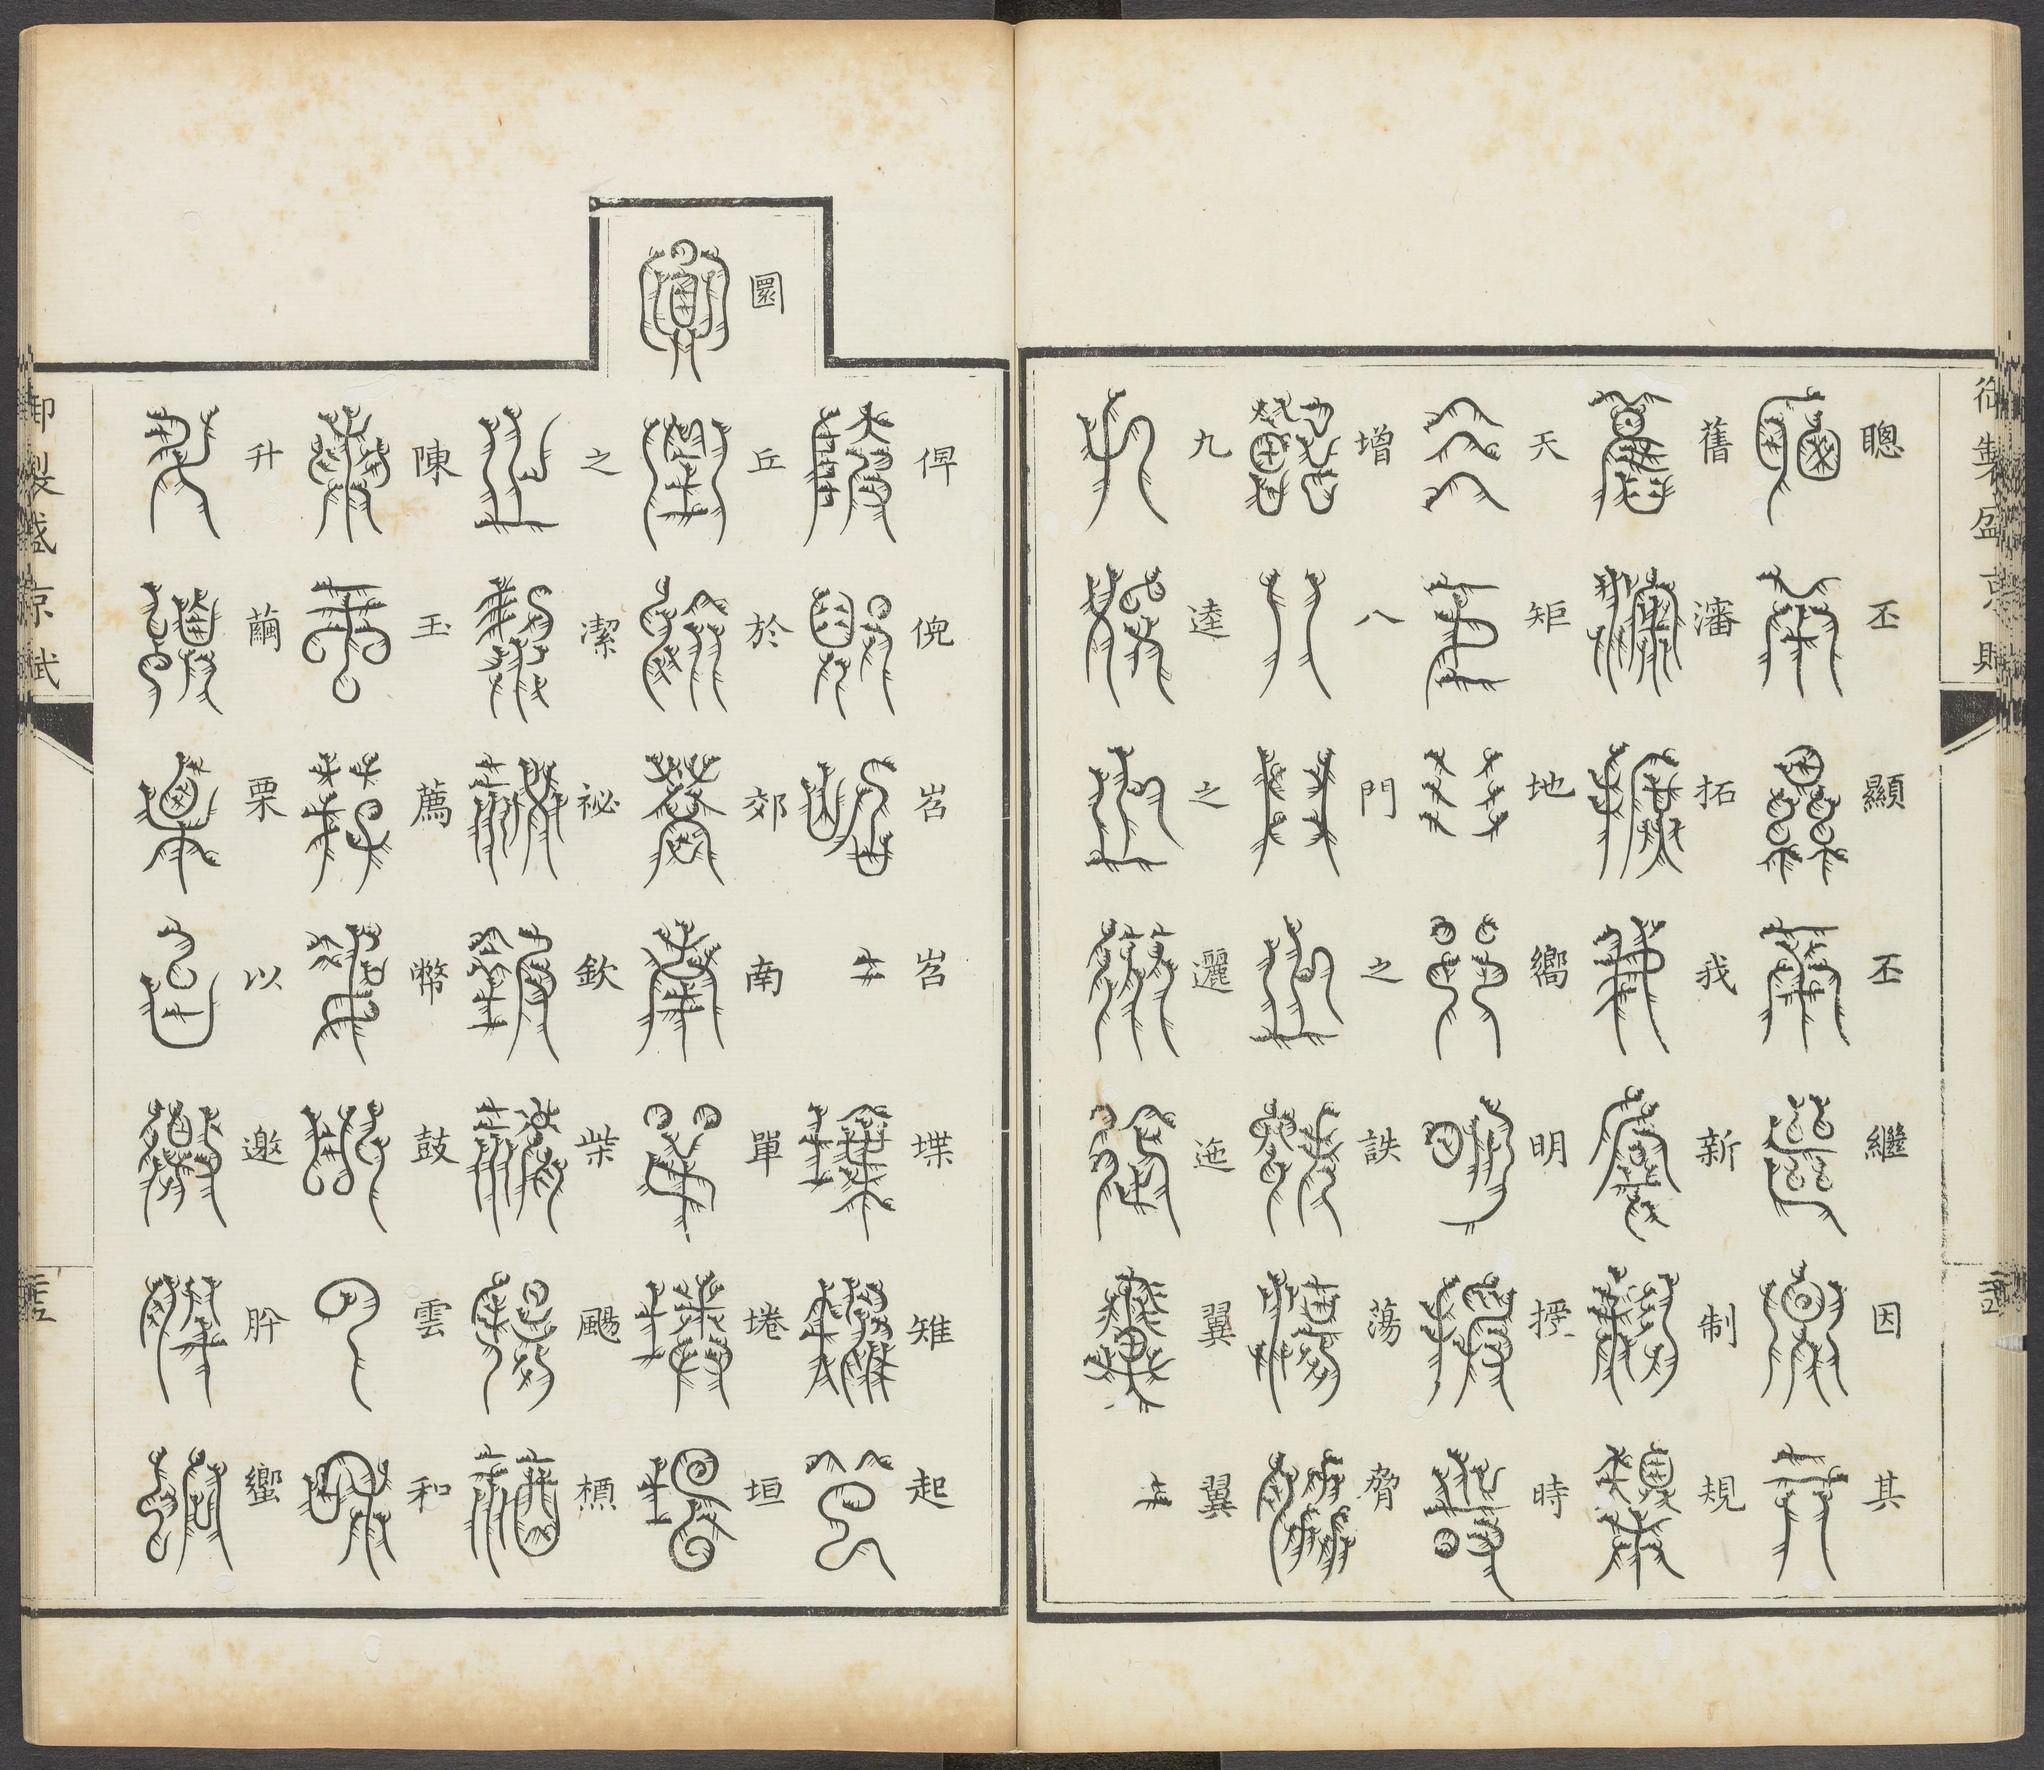 御製盛京賦
聰丕顯丕繼因其
舊瀋拓我新制規
天矩地嚮明授時
增八門之詄蕩脅
九逵之邐迤翼翼
俾倪岧岧堞雉起
圜丘於郊南單埢垣
之潔祕欽柴颺槱
陳玉薦幣鼓雲和
升繭栗以邀肸蠁
御製盛京賦